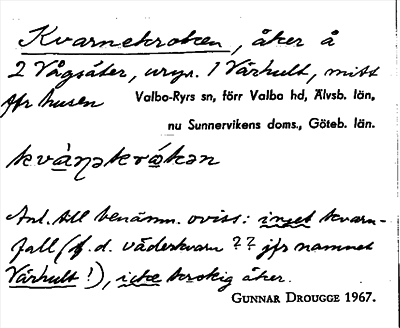 Kvarnekroken, åker å
2 Vågsäter, urspr. 1 Värhult, mitt
ffr husen Valbo-Ryrs sn, förr Valbo hd, Älvsb. län,
nu Sunnervikens doms., Göteb. län.
kvànəkrókən
Anl. till benämn. oviss: inget kvarn-
fall (f.d. väderkvarn ?? jfr namnet
Värhult!), icke krokig åker.
GUNNAR DROUGGE 1967.